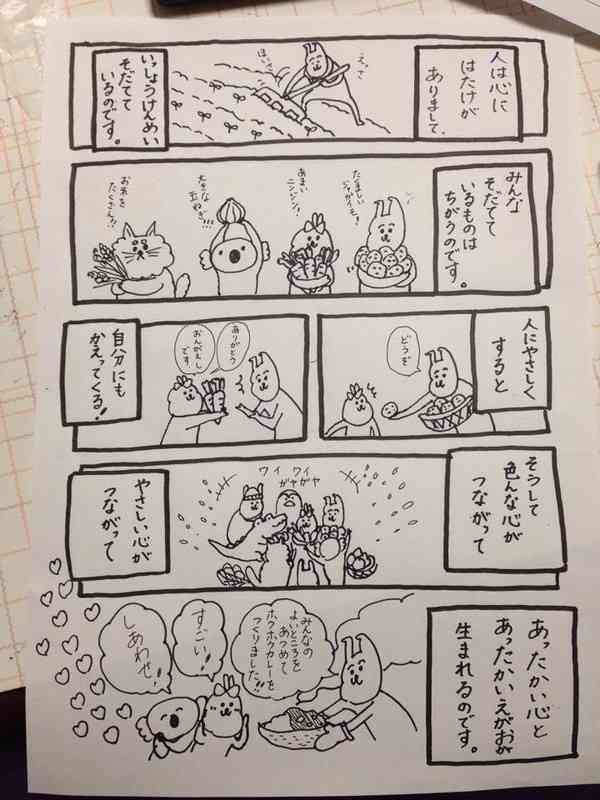 人は心に
はたけが
ありまして、
えっさ
ほいさ
いっしょうけんめい
そだてて
いるのです。
みんな
そだてて
いるものは
ちがうのです。
たくましい
ジャガイモ!
あまい
ニンジン!
大きな
玉ねぎ!!!
お米を
たくさん!?
人にやさしく
すると
どうぞ
ありがとう
おんがえし
です
自分にも
かえってくる!
そうして
色んな心が
つながって
ワイワイ
ガヤガヤ
やさしい心が
つながって
あったかい心と
あったかいえがおが
生まれるのです。
みんなの
よいところを
あつめて
ホクホクカレーを
つくりました!!
すごい!
しあわせ!